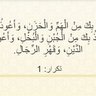 ذُ بِكَ مِنْ الْهَمِّ وَالْحَزَنِ، وَأَعُوذُ
بِكَ مِنْ الْجُبْنِ وَالْبُخْلِ، وَأَعُوذُ
الدَّيْنِ، وَقَهْرِ الرِّجَالِ.
تكرار: 1